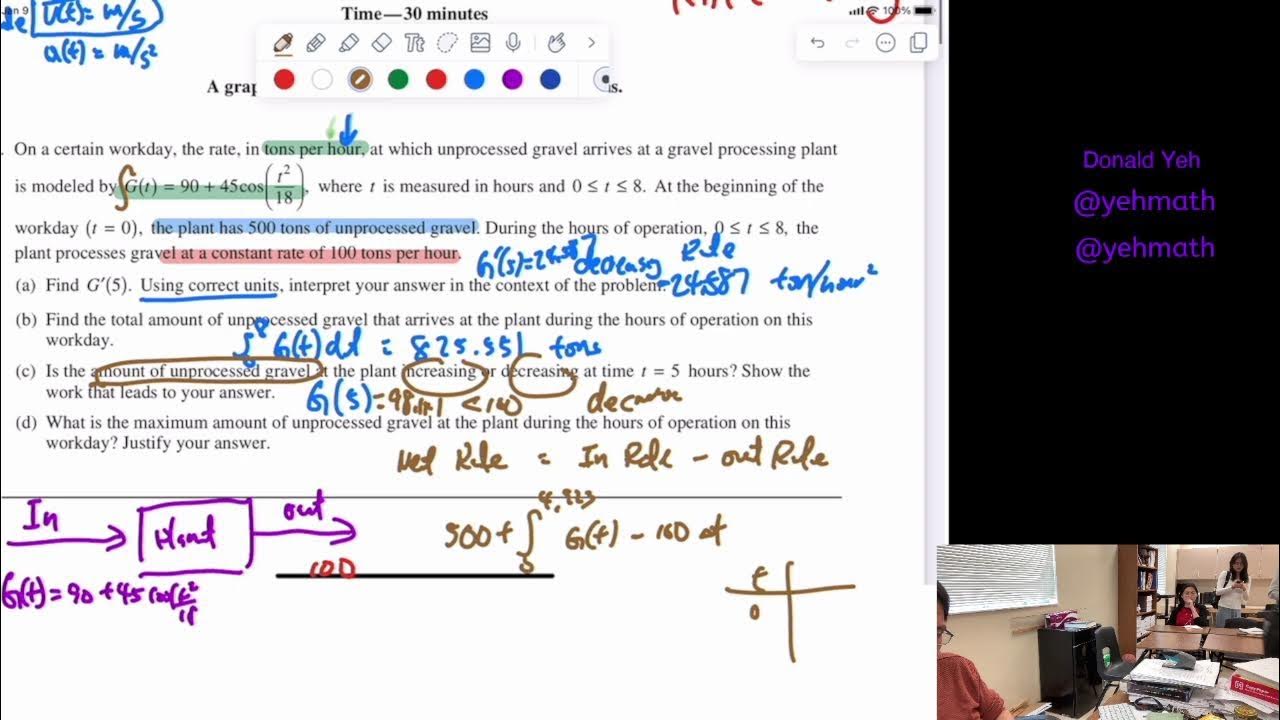 Jan 9
100%
Time—30 minutes
V(t) = m/s
a(t) = m/s²
Tt
A grap
s.
On a certain workday, the rate, in tons per hour, at which unprocessed gravel arrives at a gravel processing plant
is modeled by ∫G(t) = 90 + 45cos(t²/18), where t is measured in hours and 0 ≤ t ≤ 8. At the beginning of the
workday (t = 0), the plant has 500 tons of unprocessed gravel. During the hours of operation, 0 ≤ t ≤ 8, the
plant processes gravel at a constant rate of 100 tons per hour.
G'(5)=24.587 decreasy Rule
(a) Find G′(5). Using correct units, interpret your answer in the context of the problem.
-24.587 ton/hour²
(b) Find the total amount of unprocessed gravel that arrives at the plant during the hours of operation on this
workday.
∫₀⁸ G(t)dt = 825.551 tons
(c) Is the amount of unprocessed gravel at the plant increasing or decreasing at time t = 5 hours? Show the
work that leads to your answer.
G(5) = 98.141 < 100
(d) What is the maximum amount of unprocessed gravel at the plant during the hours of operation on this
workday? Justify your answer.
Net Rate = In Rate - out Rate
In
Plant
out
100
G(t) = 90 + 45 cos(t²/18
500 + ∫₀^4.923 G(t) - 100 dt
t
0
Donald Yeh
@yehmath
@yehmath